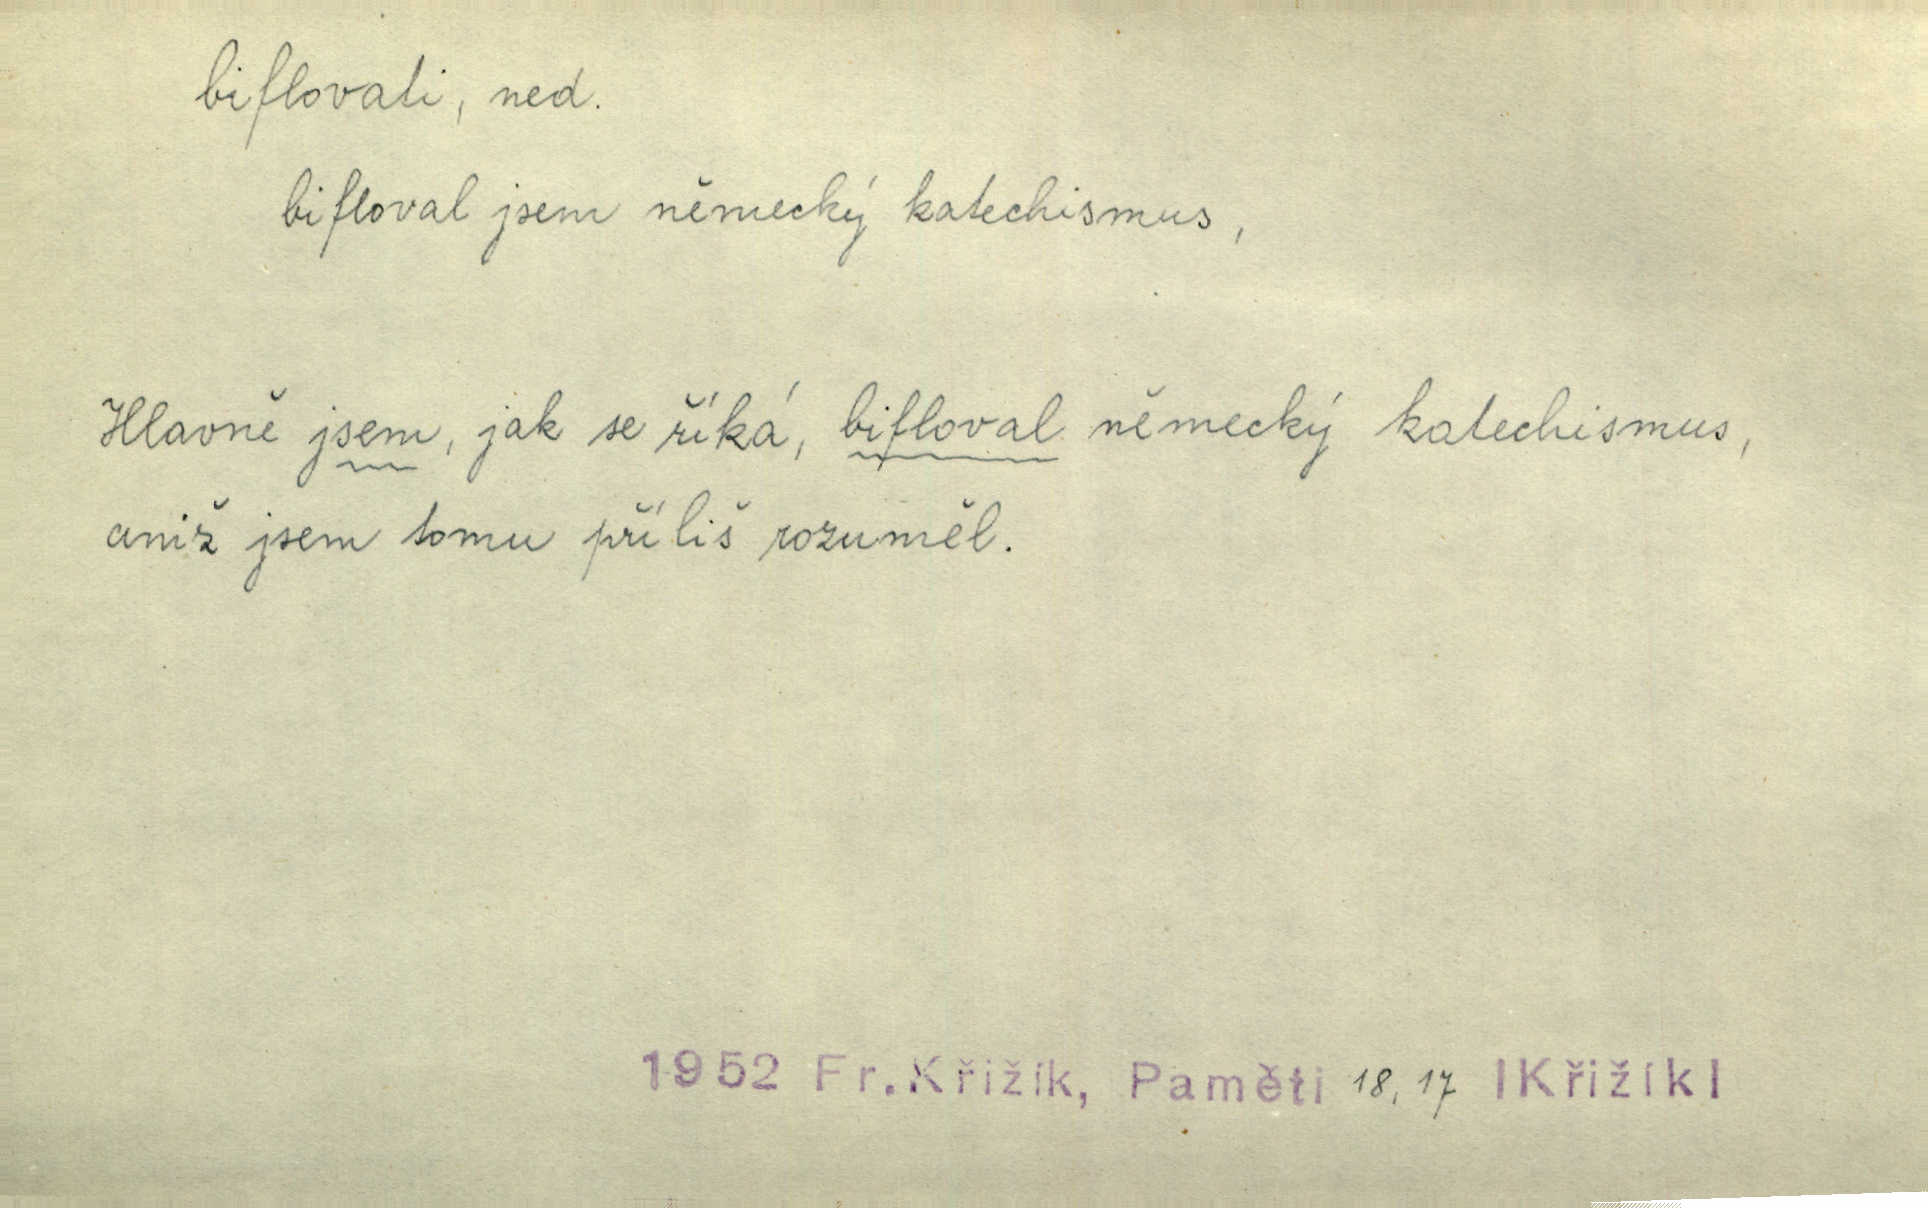 biflovati, ned.
bifloval jsem německý katechismus,
Hlavně jsem, jak se říká, bifloval německý katechismus,
aniž jsem tomu příliš rozuměl.
1952 Fr.Křižík, Paměti 18, 17 |Křižík|